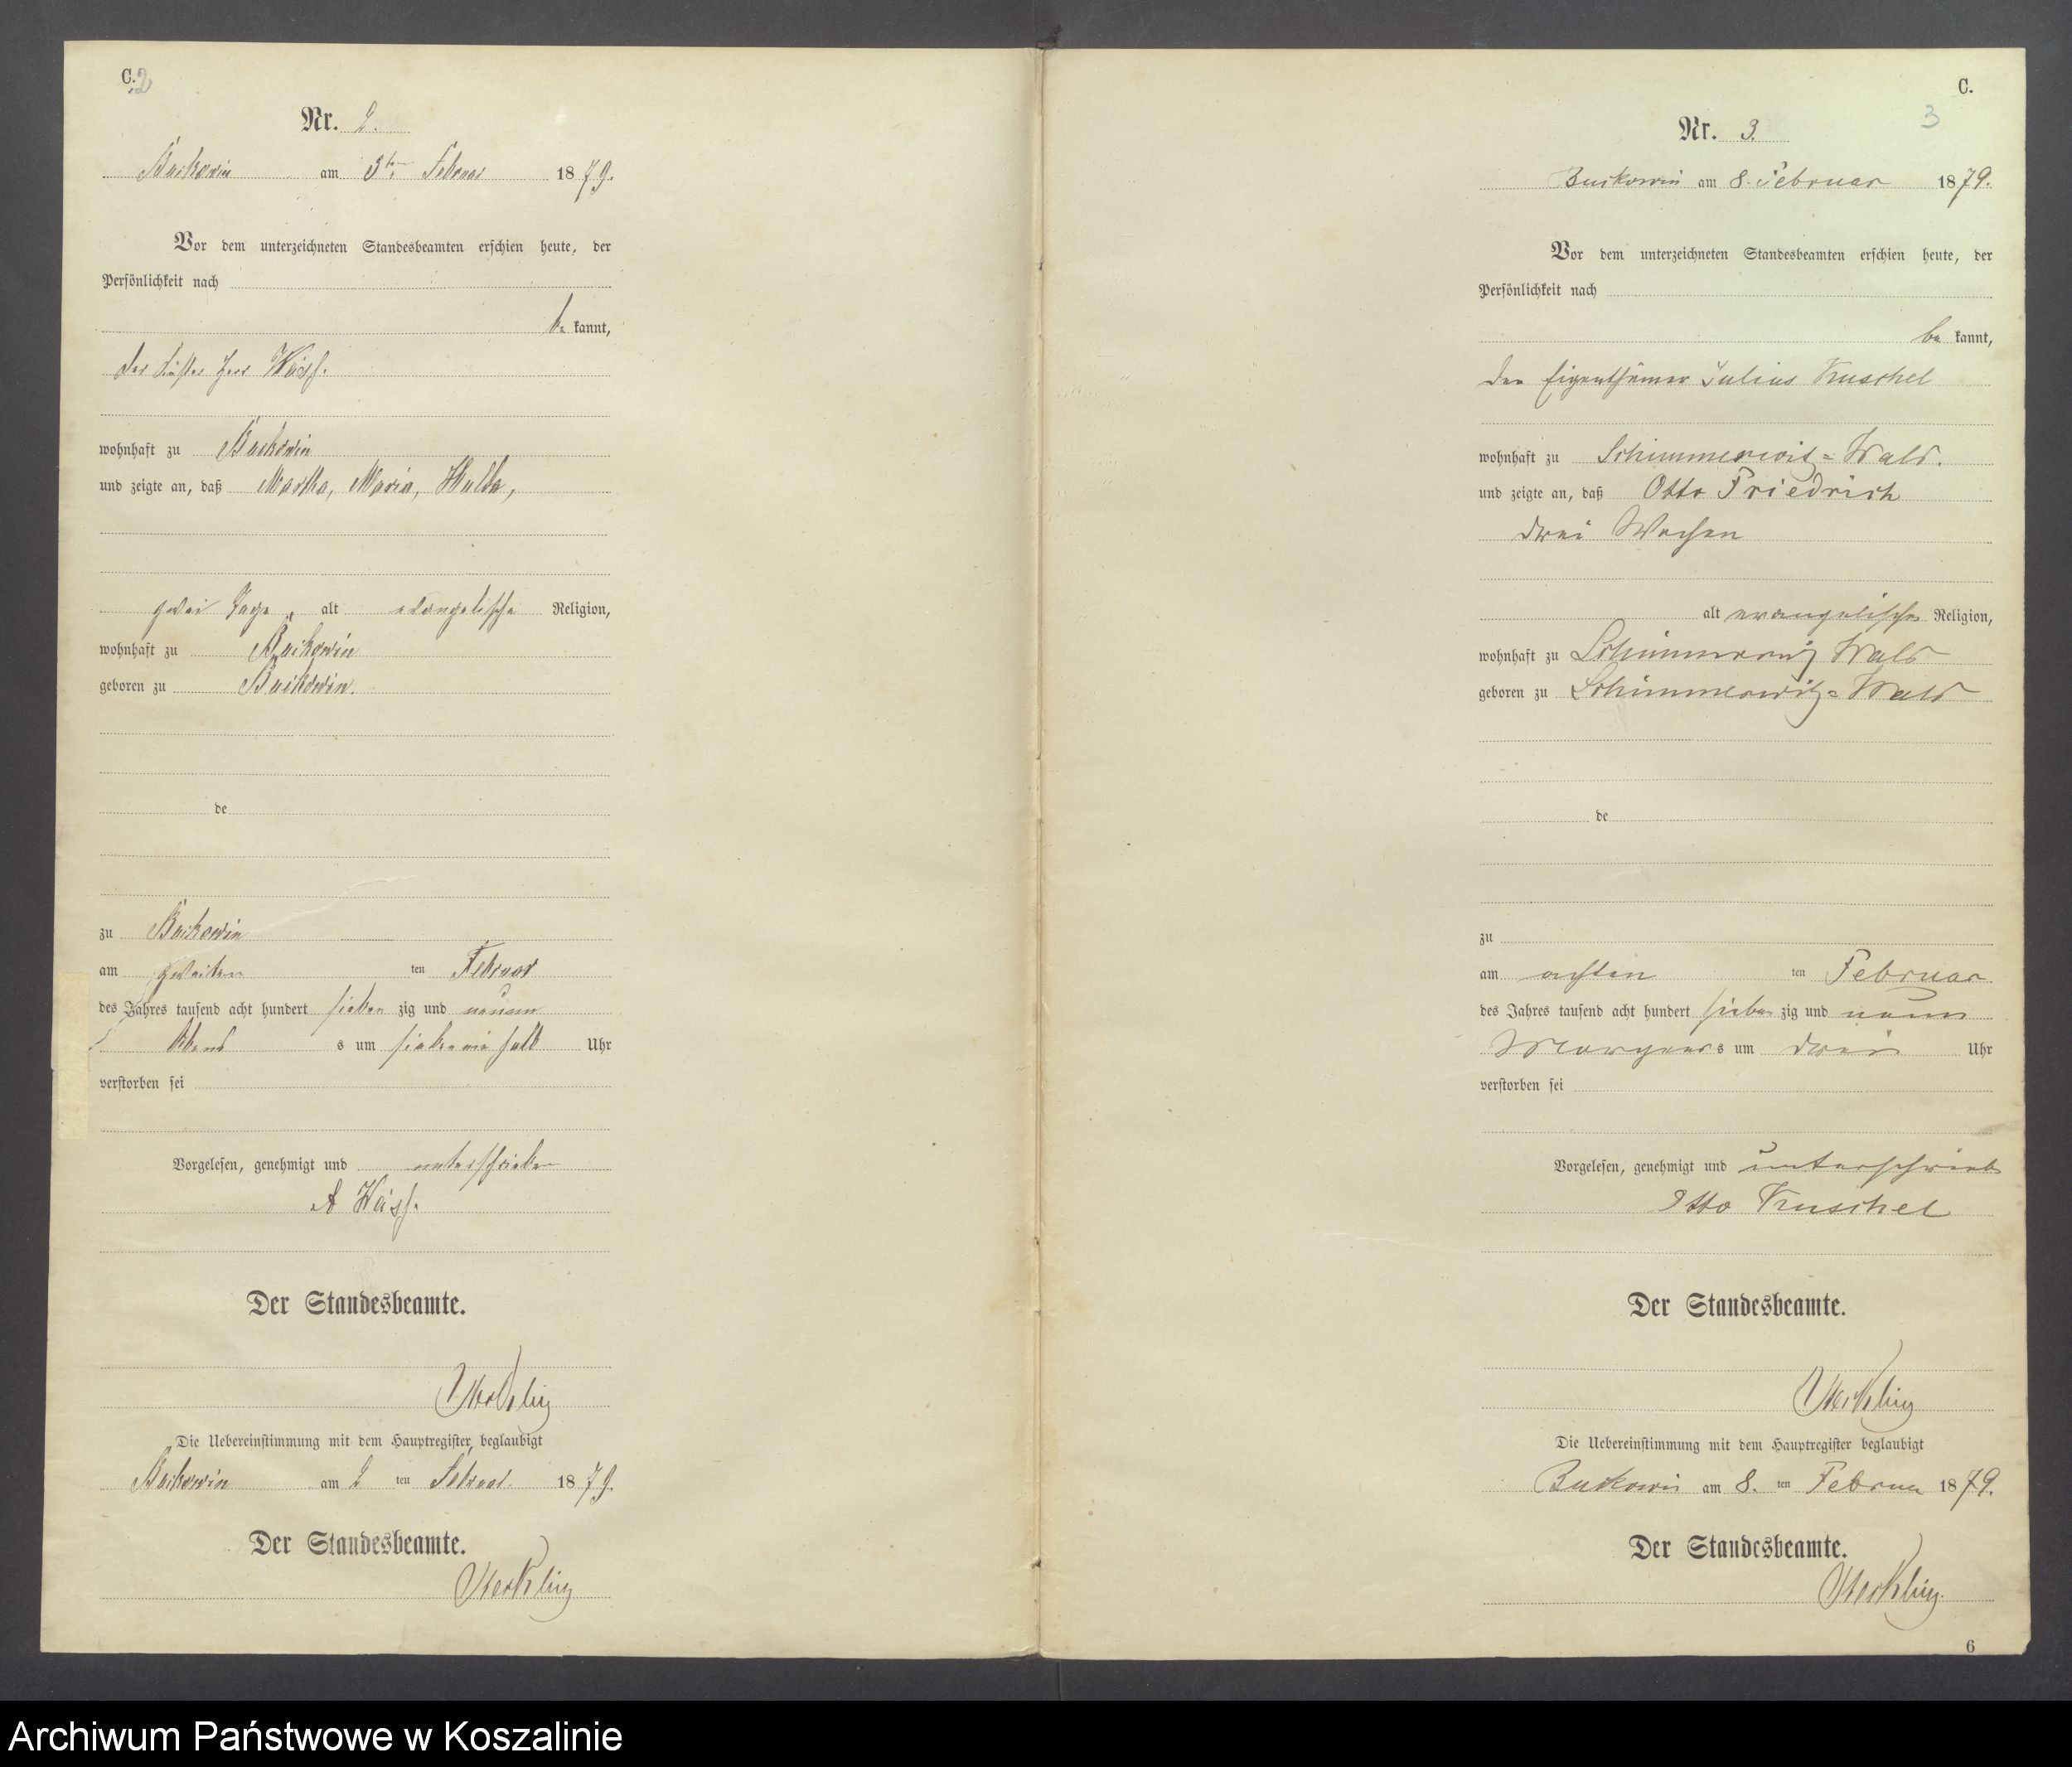 C. 2
Nr. 2.
Buckowin am 3ten Februar 1879.
Vor dem unterzeichneten Standesbeamten erschien heute, der
Persönlichkeit nach
be kannt,
der Küster Herr
wohnhaft zu Buckowin
und zeigte an, daß Martha, Maria, Hulda,
zwei Tage, alt evangelische Religion,
wohnhaft zu Buckowin
geboren zu Buckowin.
de
zu Buckowin
am zweiten ten Februar
des Jahres tausend acht hundert sieben zig und neuen
Abend s um sieben ein halb Uhr
verstorben sei
Vorgelesen, genehmigt und unterschrieben
A
Der Standesbeamte.
Die Uebereinstimmung mit dem Hauptregister beglaubigt
Buckowin am 2 ten Februar 1879.
Der Standesbeamte.
C.
3
Nr. 3.
Buckowin am 8. Februar 1879.
Vor dem unterzeichneten Standesbeamten erschien heute, der
Persönlichkeit nach
be kannt,
der Eigenthümer Julius Kuschel
wohnhaft zu Schimmerwitz=Wald.
und zeigte an, daß Otto Friedrich
drei Wochen
alt evangelischer Religion,
wohnhaft zu Schimmerwitz Wald
geboren zu Schimmerwitz=Wald
de
zu
am achten ten Februar
des Jahres tausend acht hundert sieben zig und neun
Morgens s um drei Uhr
verstorben sei
Vorgelesen, genehmigt und unterschrieb
Otto Kuschel
Der Standesbeamte.
Die Uebereinstimmung mit dem Hauptregister beglaubigt
Buckowin am 8. ten Februar 1879.
Der Standesbeamte.
6
Archiwum Państwowe w Koszalinie